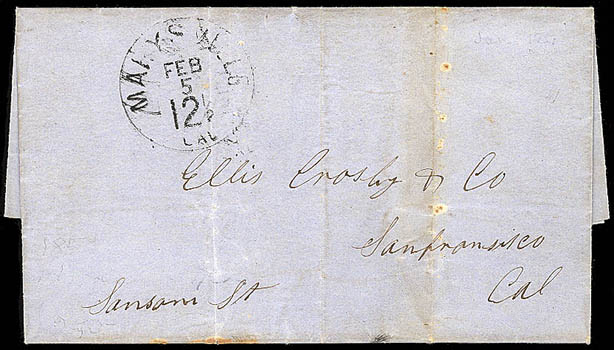 MARYSVILLE
FEB
5
12½
CAL
Ellis Crosby & Co
Sanfransisco
Sansom St
Cal